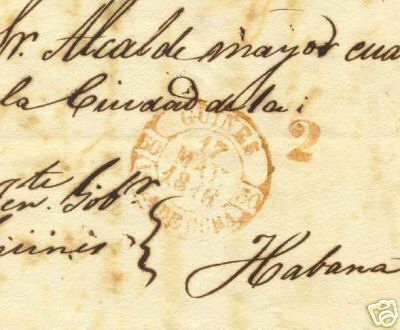 Sr. Alcalde mayor cua
la Ciudad de la
GUINES
17
MAY
1848
ISLA DE CUBA
2
te
en. Gobr
Guines
Habana